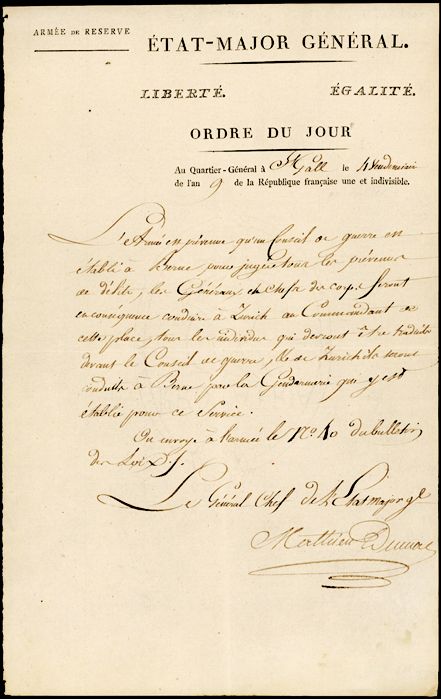 ARMÉE DE RESERVE
ÉTAT-MAJOR GÉNÉRAL.
LIBERTÉ. ÉGALITÉ.
ORDRE DU JOUR
Au Quartier-Général à St Gall le 4 Vendemiair
de l'an 9 de la République française une et indivisible.
L'Armée en prévenue qu'un Conseil de guerre en
établi à Berne pour juger tous les prévenus
de délits, les Généraux et chefs de corps feront
en conséquence conduire à Zurich au Commandant de
cette place, tous les individus qui devront être traduits
devant le Conseil de guerre, & de Zurich ils seront
conduits à Berne par la Gendarmerie qui y est
établie pour ce Service.
On envoye à l'armée le No. 40 du bulletin
des Loix.
Le Général Chef de l'Etat major gl
Mathieu Dumas